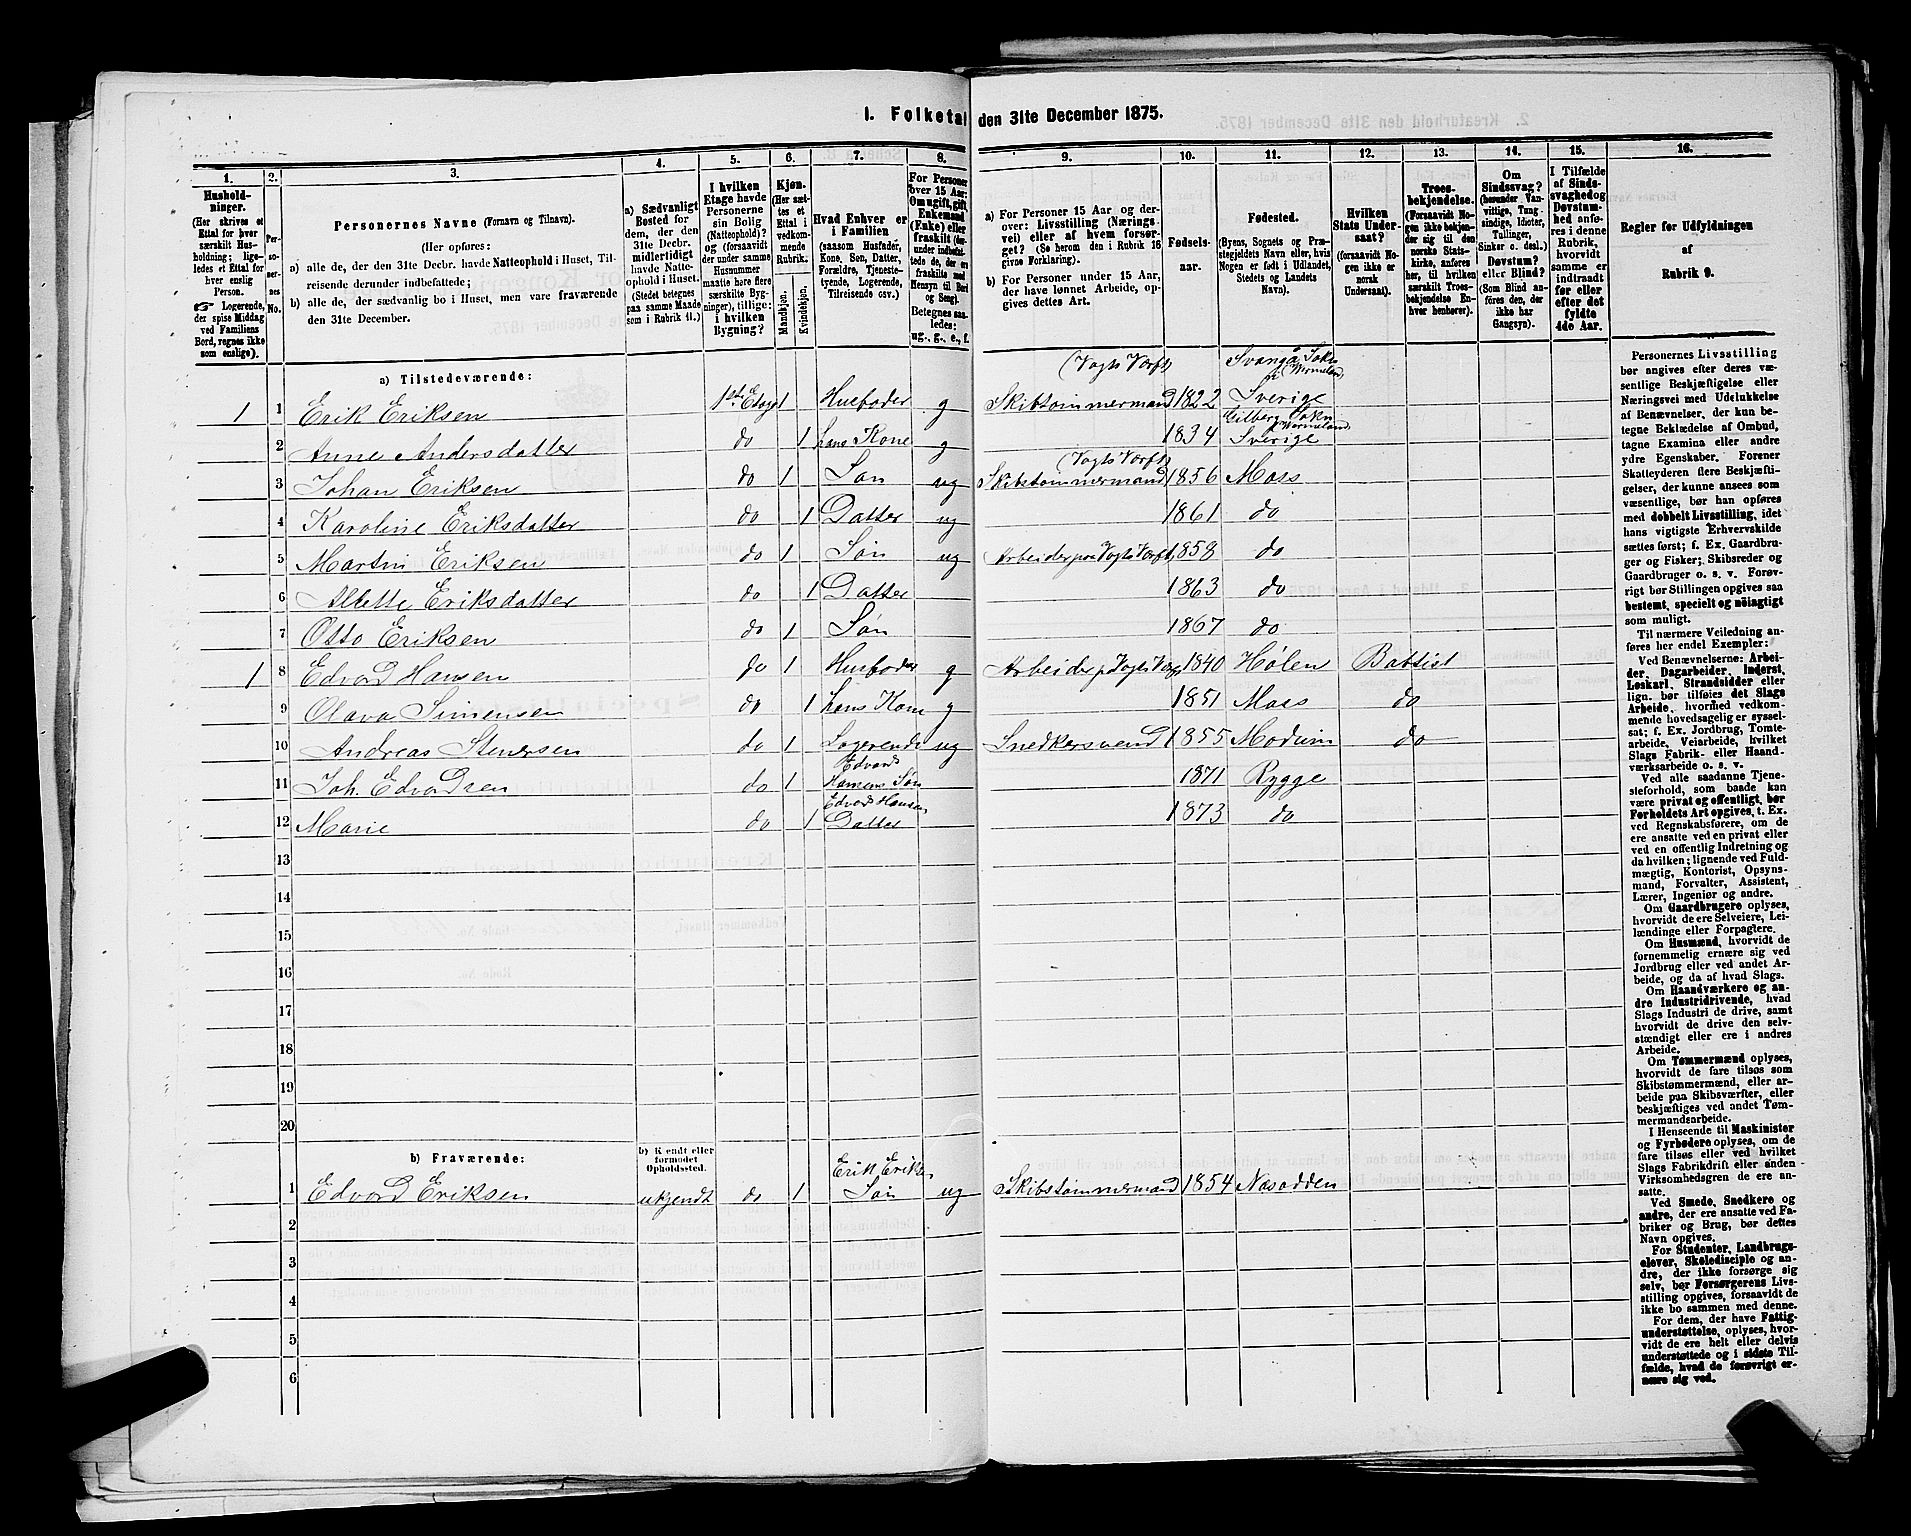 1. Folketal den 31te December 1875.
1. 2. 3. 4. 5. 6. 7. 8. 9. 10. 11. 12. 13. 14. 15. 16.
Hushold-
ninger.
(Her skrives et
Ettal for hver
særskilt Hus-
holdning; lige-
ledes et Ettal for
hver enslig
Person.
Logerende,
der spise Middag
ved Familiens
Bord, regnes ikke
som enslige).
Per-
so-
ner-
nes
No.
Personernes Navne (Fornavn og Tilnavn).
(Her opføres:
a) alle de, der den 31te Decbr. havde Natteophold i Huset, Til-
reisende derunder indbefattede;
b) alle de, der sædvanlig bo i Huset, men vare fraværende
den 31te December.
a) Sædvanligt
Bosted for
dem, der den
31te Decbr.
midlertidigt
havde Natte-
ophold i Huset.
(Stedet betegnes
paa samme Maade
som i Rubrik 11.)
I hvilken
Etage havde
Personerne
sin Bolig
(Natteophold)?
og (forsaavidt
der under samme
Husnummer
maatte høre flere
særskilte Byg-
ninger), tillige:
i hvilken
Bygning?
Kjøn.
(Her sæt-
tes et
Ettal i
vedkom-
mende
Rubrik.
Mandkjøn.
Kvindekjøn.
Hvad Enhver er
i Familien
(saasom Husfader,
Kone, Søn, Datter,
Forældre, Tjeneste-
tyende, Logerende,
Tilreisende osv.)
For Personer
over 15 Aar:
Om ugift, gift,
Enkemand
(Enke) eller
fraskilt (der-
under indbefat-
tede de, der ere
fraskilte med
Hensyn til Bord
og Seng).
Betegnes saa-
ledes:
ug., g., e., f.
a) For Personer 15 Aar og der-
over: Livsstilling (Nærings-
vei) eller af hvem forsør-
get? (Se herom den i Rubrik 16
givne Forklaring).
b) For Personer under 15 Aar,
der have lønnet Arbeide, op-
gives dettes Art.
Fødsels-
aar.
Fødested.
(Byens, Sognets og Præ-
stegjeldets Navn eller, hvis
Nogen er født i Udlandet,
Stedets og Landets
Navn).
Hvilken
Stats Under-
saat?
(forsaavidt No-
gen ikke er
norsk
Undersaat).
Troes-
bekjendelse.
(Forsaavidt No-
gen ikke bekjen-
der sig til den
norske Stats-
kirke, anføres
her, til hvilken
særskilt Troes-
bekjendelse En-
hver henhører).
Om
Sindssvag?
(herunder Van-
vittige, Tung-
sindige, Idioter,
Tullinger,
Sinker o. desl.)
Døvstum?
eller Blind?
(Som Blind an-
føres den, der
ikke har
Gangsyn).
I Tilfælde
af Sinds-
svaghed og
Døvstum-
hed anfø-
res i denne
Rubrik,
hvorvidt
samme er
indtraadt
før eller
efter det
fyldte
4de Aar.
Regler for Udfyldningen
af
Rubrik 9.
a) Tilstedeværende:
(Vogts Værft) Svanga Sokn
Vermeland
1 1 Erik Eriksen 1st Etage 1 Husfader g Skibstømmermand 1822 Sverige
Gilberg Sokn
Vermeland
2 Anne Andersdatter do 1 hans Kone g 1834 Sverige
(Vogts Værft)
3 Johan Eriksen do 1 Søn ug Skibstømmermand 1856 Moss
4 Karoline Eriksdatter do 1 Datter ug 1861 do
5 Martin Eriksen do 1 Søn ug Arbeider paa Vogts Værft 1858 do
6 Albette Eriksdatter do 1 Datter 1863 do
7 Otto Eriksen do 1 Søn 1867 do
1 8 Edvard Hansen do 1 Husfader g Arbeider p Vogts Værft 1840 Hølen Battist
9 Olava Simensen do 1 hans Kone g 1851 Moss do
10 Andreas Stenersen do 1 Logerende ug Snedkersvend 1855 Modum do
Edvard
11 Joh. Edvardsen do 1 Hansens Søn 1871 Rygge
Edvard Hansen
12 Marie do 1 Datter 1873 do
13
14
15
16
17
18
19
20
b) Fraværende:
b) Kjendt eller
formodet
Opholdssted.
Erik Eriksen
1 Edvard Eriksen ukjendt do 1 Søn ug Skibstømmermand 1854 Næsodden
2
3
4
5
6
Personernes Livsstilling
bør angives efter deres væ-
sentlige Beskjæftigelse eller
Næringsvei med Udelukkelse
af Benævnelser, der kun be-
tegne Beklædelse af Ombud,
tagne Examina eller andre
ydre Egenskaber. Forener
Skatteyderen flere Beskjæfti-
gelser, der kunne ansees som
væsentlige, bør han opføres
med dobbelt Livsstilling, idet
hans vigtigste Erhvervskilde
sættes først; f. Ex. Gaardbru-
ger og Fisker; Skibsreder og
Gaardbruger o. s. v. Forøv-
rigt bør Stillingen opgives saa
bestemt, specielt og nöiagtigt
som muligt.
Til nærmere Veiledning an-
føres her endel Exempler:
Ved Benævnelserne: Arbei-
der, Dagarbeider, Inderst,
Løskarl, Strandsidder eller
lign. bør tilføies det Slags
Arbeide, hvormed vedkom-
mende hovedsagelig er syssel-
sat; f. Ex. Jordbrug, Tomte-
arbeide, Veiarbeide, hvilket
Slags Fabrik- eller Haand-
værksarbeide o. s. v.
Ved alle saadanne Tjene-
steforhold, som baade kan
være privat og offentligt, bør
Forholdets Art opgives, t. Ex.
ved Regnskabsførere, om de
ere ansatte ved en privat eller
ved en offentlig Indretning og
da hvilken; lignende ved Fuld-
mægtig, Kontorist, Opsyns-
mand, Forvalter, Assistent,
Lærer, Ingeniør og andre.
Om Gaardbrugere oplyses,
hvorvidt de ere Selveiere, Lei-
lændinge eller Forpagtere.
Om Husmænd, hvorvidt de
fornemmelig ernære sig ved
Jordbrug eller ved andet Ar-
beide, og da af hvad Slags.
Om Haandværkere og an-
dre Industridrivende, hvad
Slags Industri de drive, samt
hvorvidt de drive den selv-
stændigt eller ere i andres
Arbeide.
Om Tømmermænd oplyses,
hvorvidt de fare tilsøs som
Skibstømmermænd, eller ar-
beide paa Skibsværfter, eller
beskjæftiges ved andet Tøm-
mermandsarbeide.
I Henseende til Maskinister
og Fyrbødere oplyses, om de
fare tilsøs eller ved hvilket
Slags Fabrikdrift eller anden
Virksomhedsgren de ere an-
satte.
Ved Smede, Snedkere og
andre, der ere ansatte ved Fa-
briker og Brug, bør dettes
Navn opgives.
For Studenter, Landbrugs-
elever, Skoledisciple og an-
dre, der ikke forsørge sig
selv, bør Forsørgerens Livs-
stilling opgives, forsaavidt de
ikke bo sammen med denne.
For dem, der have Fattig-
understøttelse, oplyses, hvor-
vidt de ere helt eller delvis
understøttede og i sidste Til-
fælde, hvad de forøvrigt er-
nære sig ved.